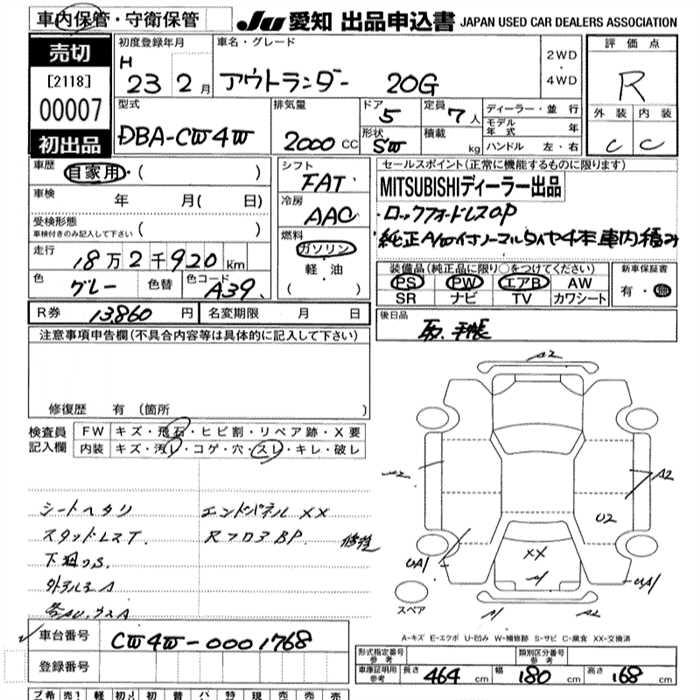 車内保管・守衛保管
JU 愛知 出品申込書 JAPAN USED CAR DEALERS ASSOCIATION
売切
[2118]
00007
初出品
初度登録年月
H 23 2月
車名・グレード
アウトランダー 20G
2WD
・
4WD
評価点
R
外装 内装
C C
型式
DBA-CW4W
排気量
2000 CC
ドア
5
形状
SW
定員
7人
積載
kg
ディーラー・並行
モデル年式 年
ハンドル 左・右
車歴
自家用・( )
車検 年 月( 日)
受検形態
車検付きのみ記入して下さい ( )
走行
18万2千920Km
色
グレー
色替
色コード
A39
シフト
FAT
冷房
AAC
燃料
ガソリン
・
軽・油
( )
セールスポイント(正常に機能するものに限ります)
MITSUBISHIディーラー出品
・ロックフォードレスOP
・純正A/Wイオノーマルタイヤ4本車内積み
装備品(純正品に限り○をつけてください)
PS PW エアB AW
SR ナビ TV カワシート
新車保証書
有・無
R券 13,860円
名変期限 月 日
後日品
取、手帳
注意事項申告欄(不具合内容等は具体的に記入して下さい)
修復歴 有(箇所 )
検査員
記入欄
FW キズ・飛石・ヒビ割・リペア跡・X要
内装 キズ・汚レ・コゲ・穴・スレ・キレ・破レ
シートヘタリ
スタッドレスT.
下廻りS.
外アルミA
エンドパネルXX
RフロアBP 修復
A2
A2
A2
U2
UA1
UA1
XX
A1
A2
スペア
A-キズ E-エクボ U-凹み W-補修跡 S-サビ C-腐食 XX-交換済
車台番号 CW4W-0001768
登録番号
形式指定番号
参考
類別区分番号
参考
車庫証明用
参考
長さ 464cm 幅 180cm 高さ 168cm